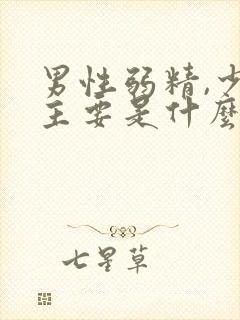 男性弱精,少
主要是什麼
七星草